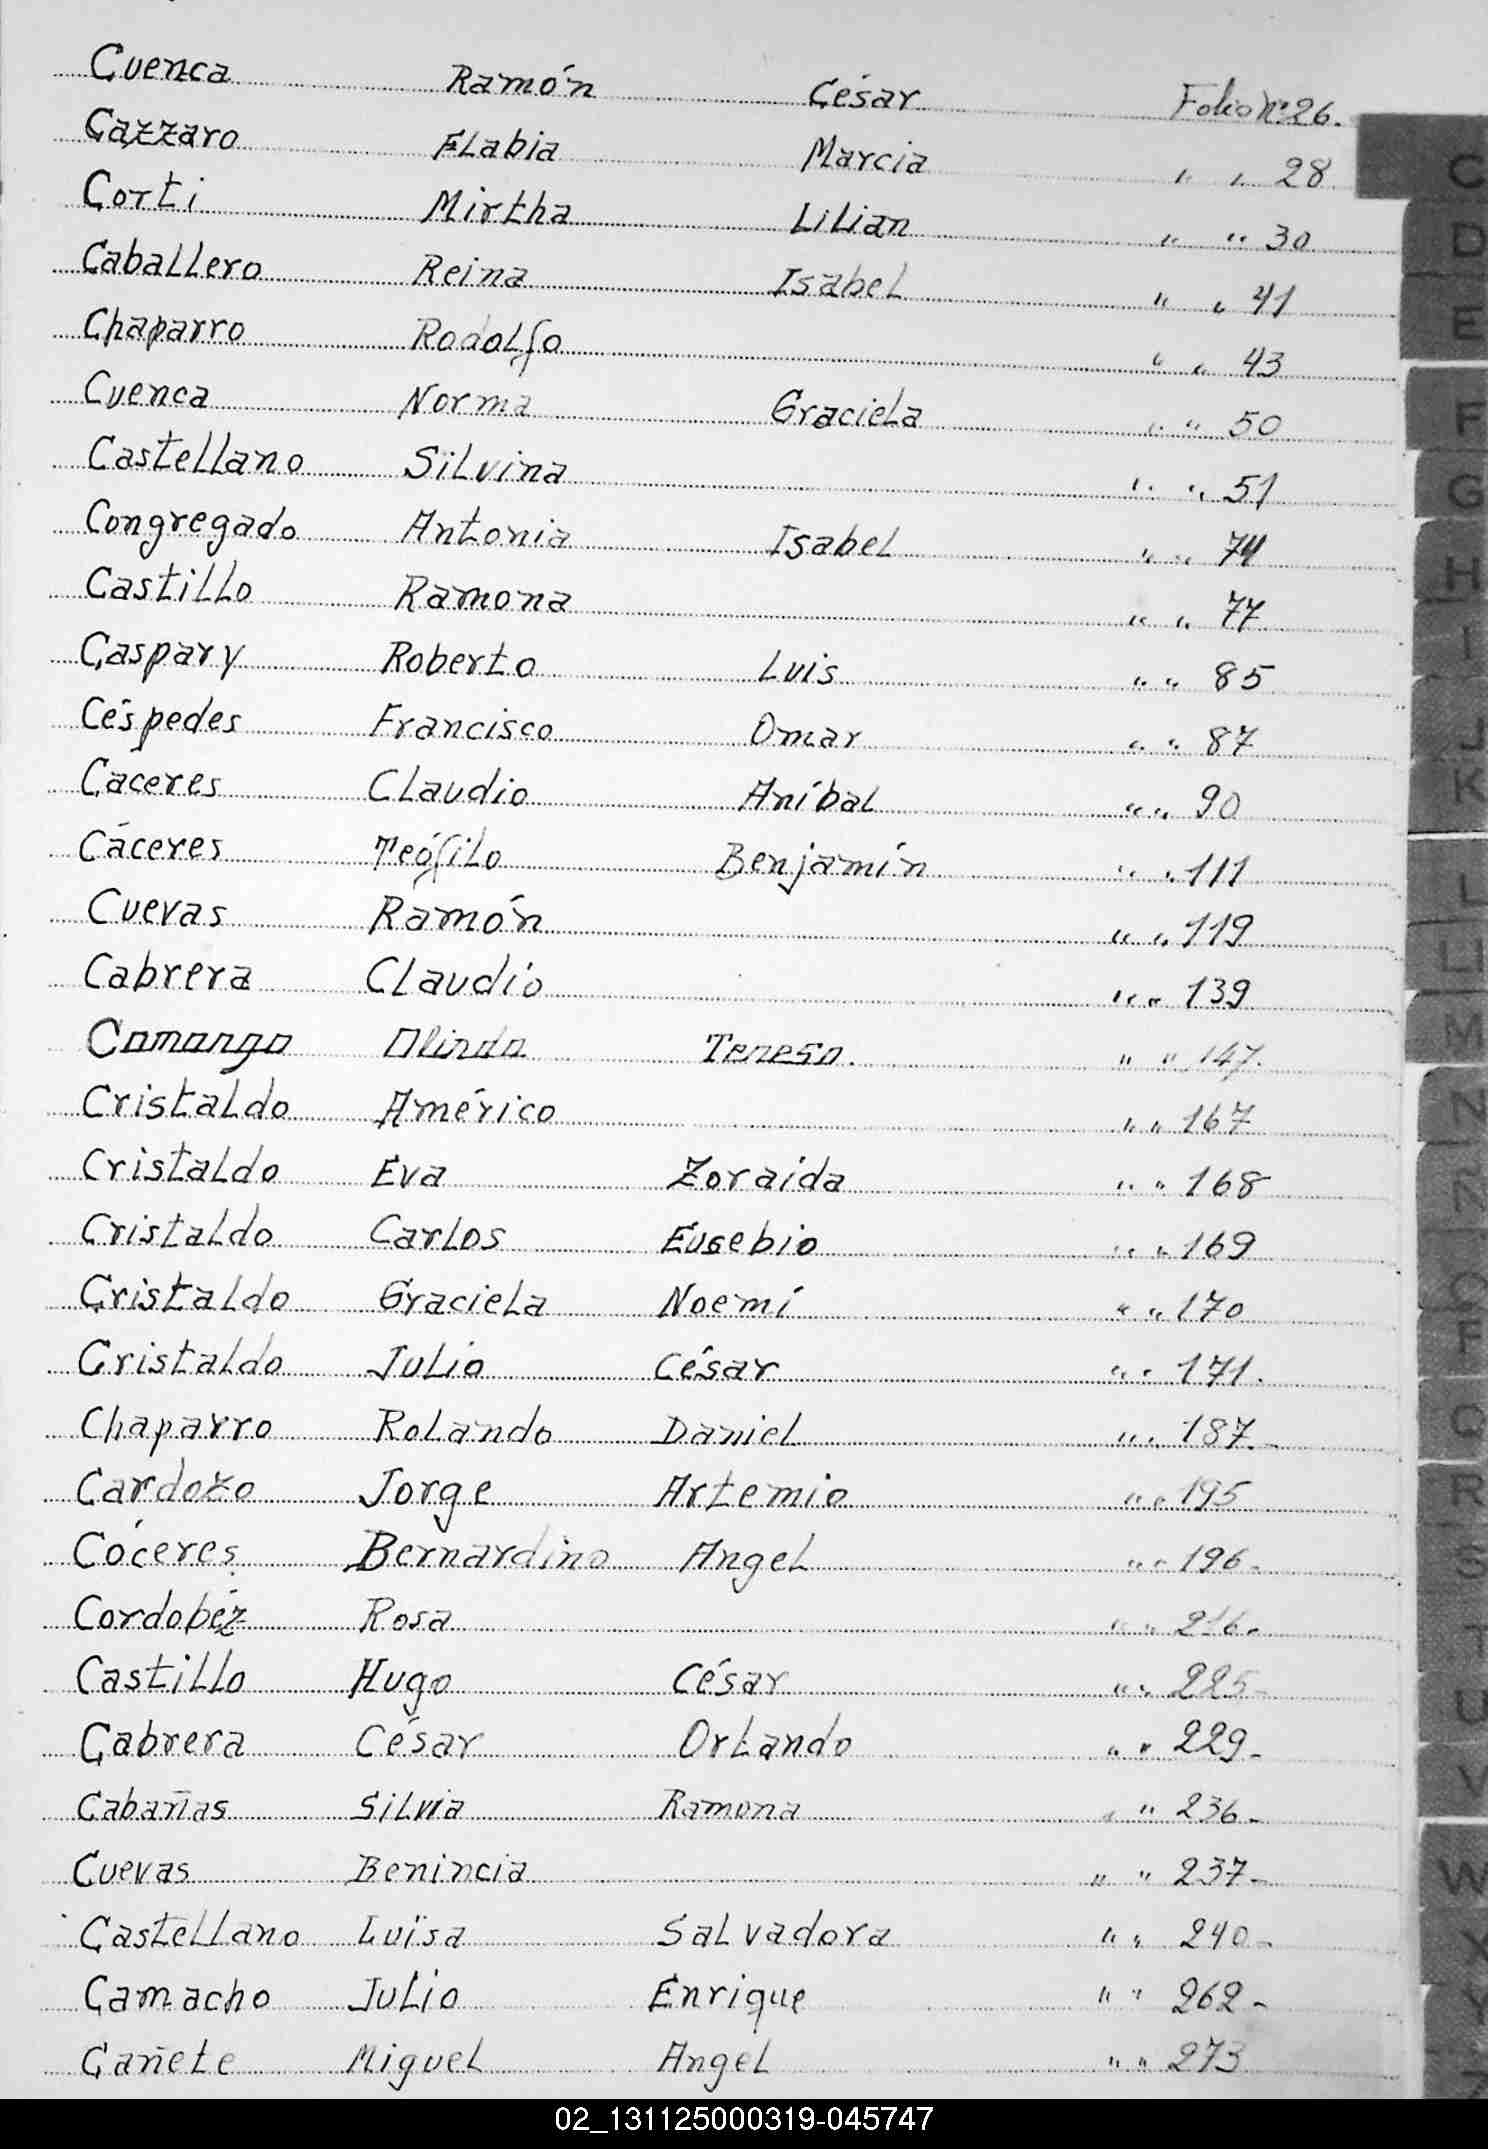 Cuenca Ramón César Folio Nº 26.
Cazzaro Flabia Marcia " " 28
Corti Mirtha Lilian " " 30
Caballero Reina Isabel " " 41
Chaparro Rodolfo " " 43
Cuenca Norma Graciela " " 50
Castellano Silvina " " 51
Congregado Antonia Isabel " " 74
Castillo Ramona " " 77
Caspary Roberto Luis " " 85
Céspedes Francisco Omar " " 87
Caceres Claudio Aníbal " " 90
Cáceres Teófilo Benjamín " " 111
Cuevas Ramón " " 119
Cabrera Claudio " " 139
Camargo Olinda Teresa. " " 147.
Cristaldo Américo " " 167
Cristaldo Eva Zoraida " " 168
Cristaldo Carlos Eusebio " " 169
Cristaldo Graciela Noemí " " 170
Cristaldo Julio César " " 171.
Chaparro Rolando Daniel " " 187.-
Cardozo Jorge Artemio " " 195
Cóceres Bernardino Angel " " 196-
Cordobéz Rosa " " 216.
Castillo Hugo César " " 225-
Cabrera César Orlando " " 229-
Cabañas Silvia Ramona " " 236-
Cuevas Benincia " " 237-
Castellano Luisa Salvadora " " 240-
Camacho Julio Enrique " " 262-
Cañete Miguel Angel " " 273
C
D
E
F
G
H
I
J
K
L
Ll
M
N
Ñ
O
P
Q
R
S
T
U
V
W
X
Y
Z
02_131125000319-045747